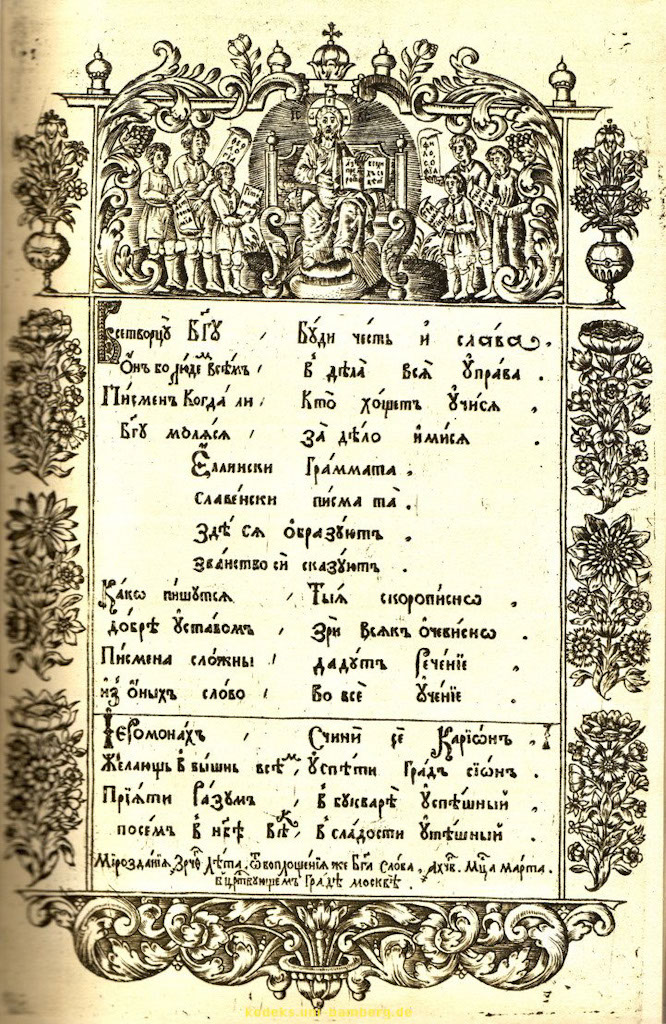 Всетворцу Бг҃у , Буди честь и слава .
Онъ бо людемъ всѣмъ , в дѣла вся управа .
Писменъ Когда ли , Кто хощетъ учися ,
Бг҃у моляся , за дѣло имися .
Еллински Граммата ,
славенски писмата .
Здѣ ся образуютъ ,
званство си сказуютъ .
Какѡ пишутся , Тыя скорописнѡ ,
добрѣ уставомъ , Зри всякъ очевиснѡ .
Писмена сложны дадутъ Реченїе ,
из оныхъ слово , во все ученїе .
Іеромонахъ , Счини се Карїѡнъ ,
Желающь в вышнь всѣмъ , Успѣти градъ сїѡнъ .
Прїяти Разумъ , в букварѣ успѣшный ,
посемъ в нб҃ѣ вѣкъ , в сладости утѣшный .
Мірозданїя ЗРЧ҃В Лѣта . Ѿ воплощенїя же Бг҃а Слова , АХЧ҃В . Мцⷭ҇а марта .
в црⷭ҇твующемъ градѣ москвѣ .
kodeks.uni-bamberg.de